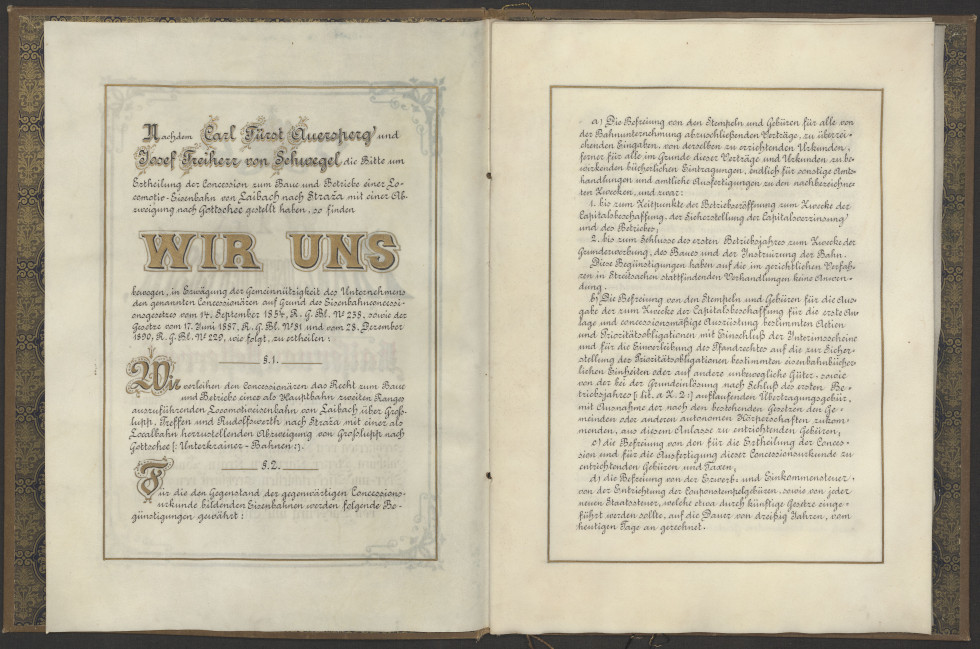 Nachdem Carl Fürst Auersperg und
Josef Freiherr von Schwegel die Bitte um
Ertheilung der Concession zum Baue und Betriebe einer Lo-
comotiv-Eisenbahn von Laibach nach Straža mit einer Ab-
zweigung nach Gottschee gestellt haben, so finden
WIR UNS
bewogen, in Erwägung der Gemeinnützigkeit des Unternehmens
den genannten Concessionären auf Grund des Eisenbahnconcessi-
onsgesetzes vom 14. September 1854, R. G. Bl. No 238, sowie der
Gesetze vom 17. Juni 1887, R. G. Bl. No 81 und vom 28. Dezember
1890, R. G. Bl. No 229, wie folgt, zu ertheilen:
§. 1.
Wir verleihen den Concessionären das Recht zum Baue
und Betriebe eines als Hauptbahn zweiten Ranges
auszuführenden Locomotiveisenbahn von Laibach über Groß-
lupp, Treffen und Rudolfswerth nach Straža mit einer als
Localbahn herzustellenden Abzweigung von Großlupp nach
Gottschee [: Unterkrainer-Bahnen :].
§. 2.
Für die den Gegenstand der gegenwärtigen Concessions-
urkunde bildenden Eisenbahnen werden folgende Be-
günstigungen gewährt:
a) Die Befreiung von den Stempeln und Gebüren für alle von
der Bahnunternehmung abzuschließenden Verträge, zu überrei-
chenden Eingaben, von derselben zu errichtenden Urkunden,
ferner für alle im Grunde dieser Verträge und Urkunden zu be-
wirkenden bücherlichen Eintragungen, endlich für sonstige Amts-
handlungen und amtliche Ausfertigungen zu den nachbezeichne-
ten Zwecken, und zwar:
1. bis zum Zeitpunkte der Betriebseröffnung zum Zwecke der
Capitalsbeschaffung, der Sicherstellung der Capitalsverzinsung
und des Betriebes;
2. bis zum Schlusse des ersten Betriebsjahres zum Zwecke der
Grunderwerbung, des Baues und der Instruirung der Bahn.
Diese Begünstigungen haben auf die im gerichtlichen Verfah-
ren in Streitsachen stattfindenden Verhandlungen keine Anwen-
dung.
b) Die Befreiung von den Stempeln und Gebüren für die Aus-
gabe der zum Zwecke der Capitalsbeschaffung für die erste An-
lage und concessionsmäßige Ausrüstung bestimmten Actien
und Prioritätsobligationen mit Einschluß der Interimsscheine
und für die Einverleibung des Pfandrechtes auf die zur Sicher-
stellung der Prioritätsobligationen bestimmten eisenbahnbücher-
lichen Einheiten oder auf andere unbewegliche Güter, sowie
von der bei der Grundeinlösung nach Schluß des ersten Be-
triebsjahres [: lit. a Z. 2 :] auflaufenden Übertragungsgebür,
mit Ausnahme der nach den bestehenden Gesetzen den Ge-
meinden oder anderen autonomen Körperschaften zukom-
menden, aus diesem Anlasse zu entrichtenden Gebüren;
c) die Befreiung von den für die Ertheilung der Conces-
sion und für die Ausfertigung dieser Concessionsurkunde zu
entrichtenden Gebüren und Taxen;
d) die Befreiung von der Erwerb- und Einkommensteuer,
von der Entrichtung der Couponstempelgebüren, sowie von jeder
neuen Staatssteuer, welche etwa durch künftige Gesetze einge-
führt werden sollte, auf die Dauer von dreißig Jahren, vom
heutigen Tage an gerechnet.